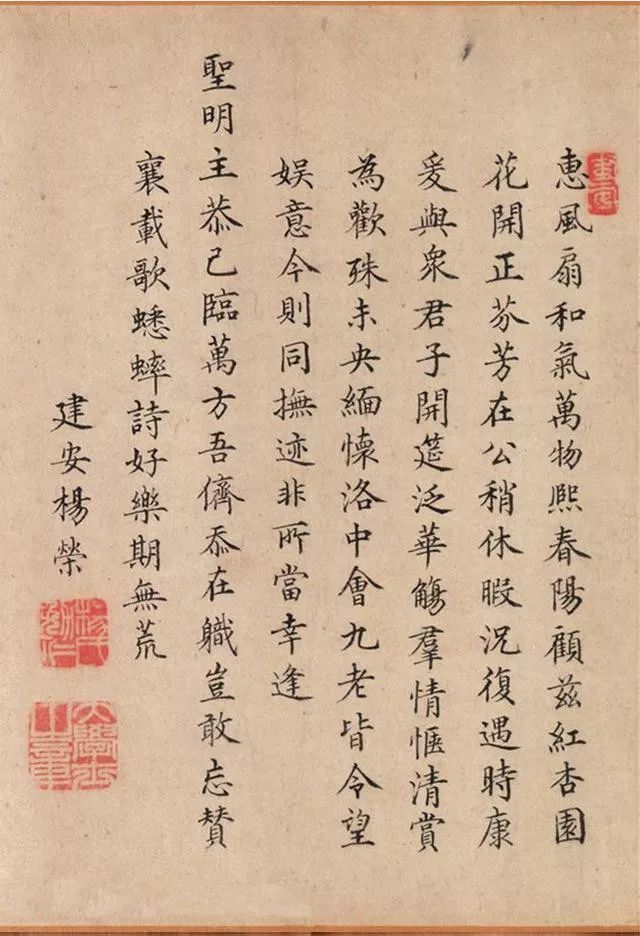 惠風扇和氣萬物熙春陽顧茲紅杏園
花開正芬芳在公稍休暇況復遇時康
爰與衆君子開筵泛華觴羣情愜清賞
為歡殊未央緬懷洛中會九老皆令望
娛意今則同撫迹非所當幸逢
聖明主恭己臨萬方吾儕忝在職豈敢忘贊
襄載歌蟋蟀詩好樂期無荒
建安楊榮
楊氏勉仁